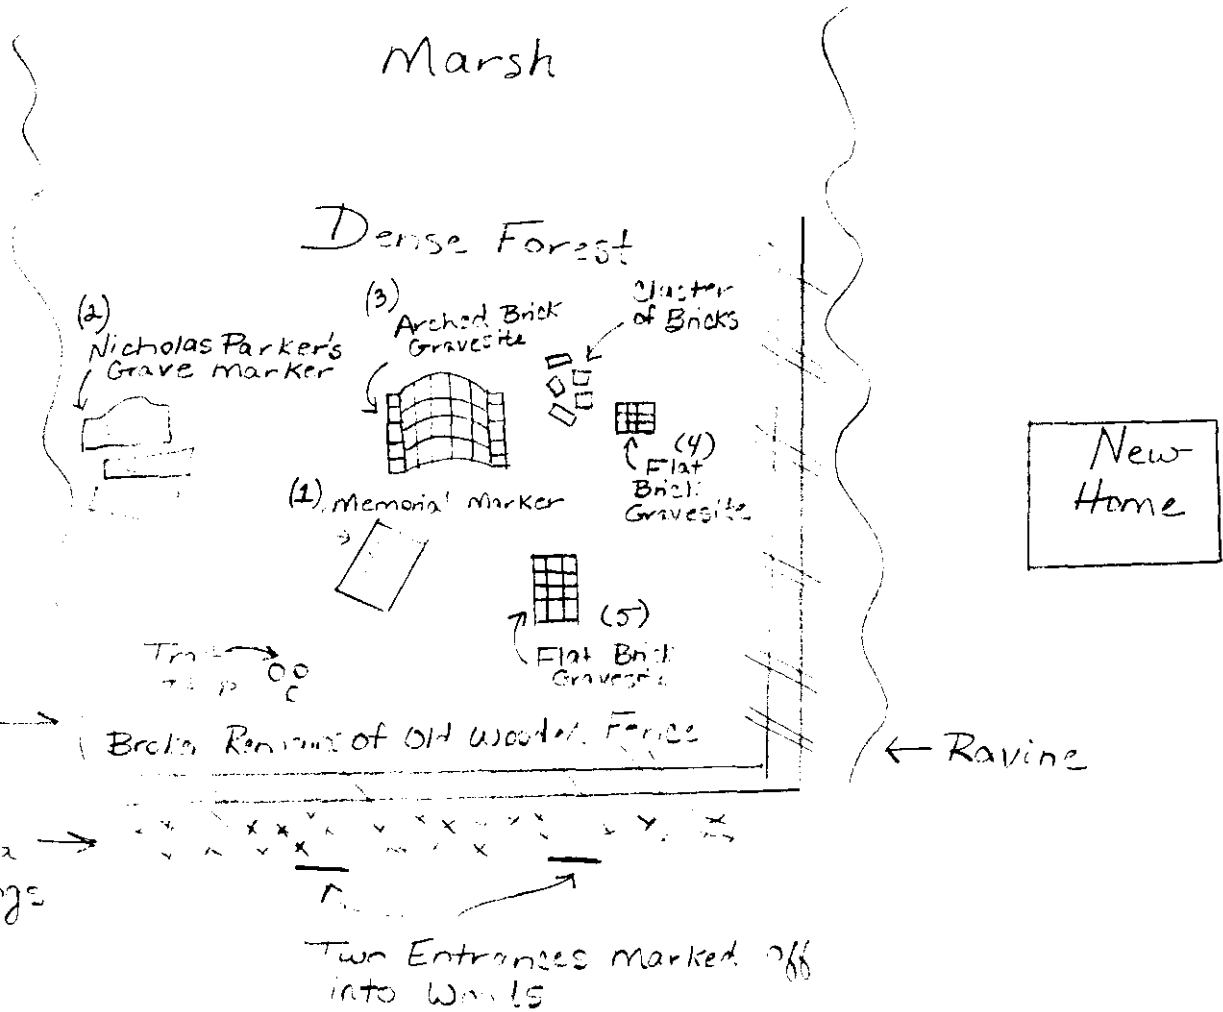 Marsh
Dense Forest
(2)
Nicholas Parker's
Grave Marker
(3)
Arched Brick
Gravesite
Cluster
of Bricks
(4)
Flat
Brick
Gravesite
New
Home
(1) Memorial Marker
(5)
Flat Brick
Gravesite
Broken Remains of Old Wooden Fence
← Ravine
Two Entrances Marked off
into Woods